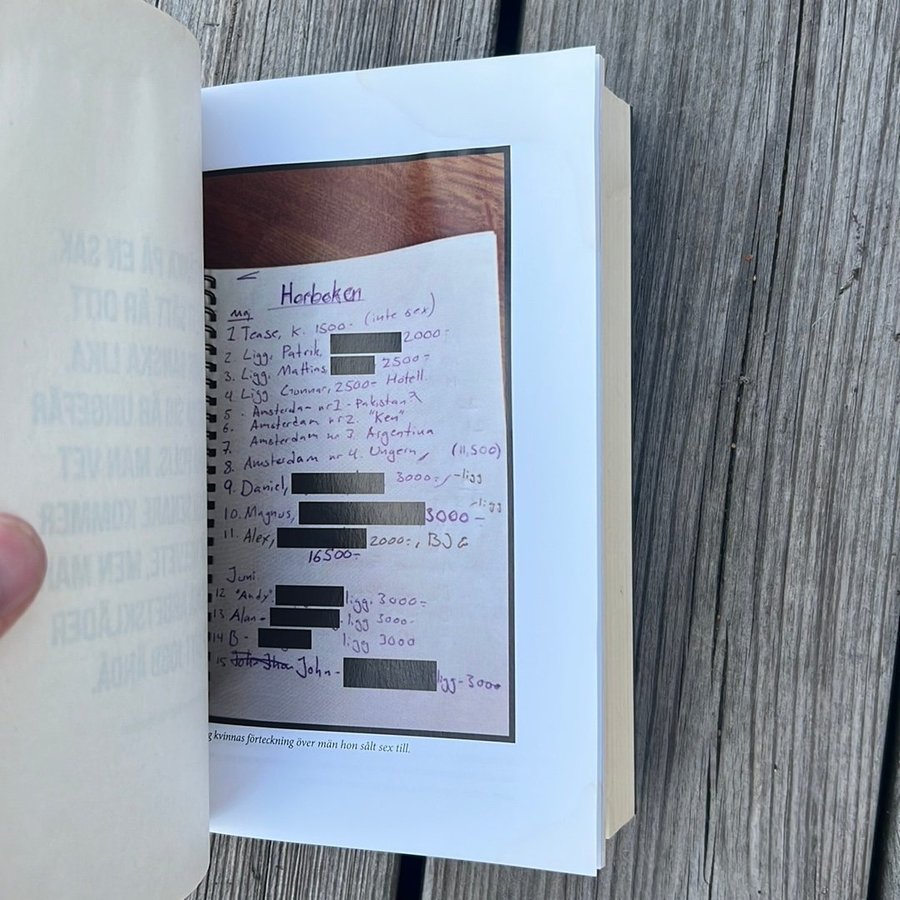 Horboken
Maj
1 Tease, K. 1500:- (inte sex)
2. Ligg, Patrik, 2000:-
3. Ligg, Mattias, 2500:-
4. Ligg Gunnar, 2500:- Hotell
5. Amsterdam nr 1 - Pakistan?
6. Amsterdam nr 2. "Ken"
7. Amsterdam nr 3. Argentina
8. Amsterdam nr 4. Ungern, (11,500)
9. Daniel, 3000:-, -ligg
10. Magnus, 3000:- -ligg
11. Alex, 2000:-, BJ
16500:-
Juni
12 "Andy" ligg. 3000:-
13 Alan - ligg 3000:-
14 B - ligg 3000
15 John - ligg - 3000
g kvinnas förteckning över män hon sålt sex till.